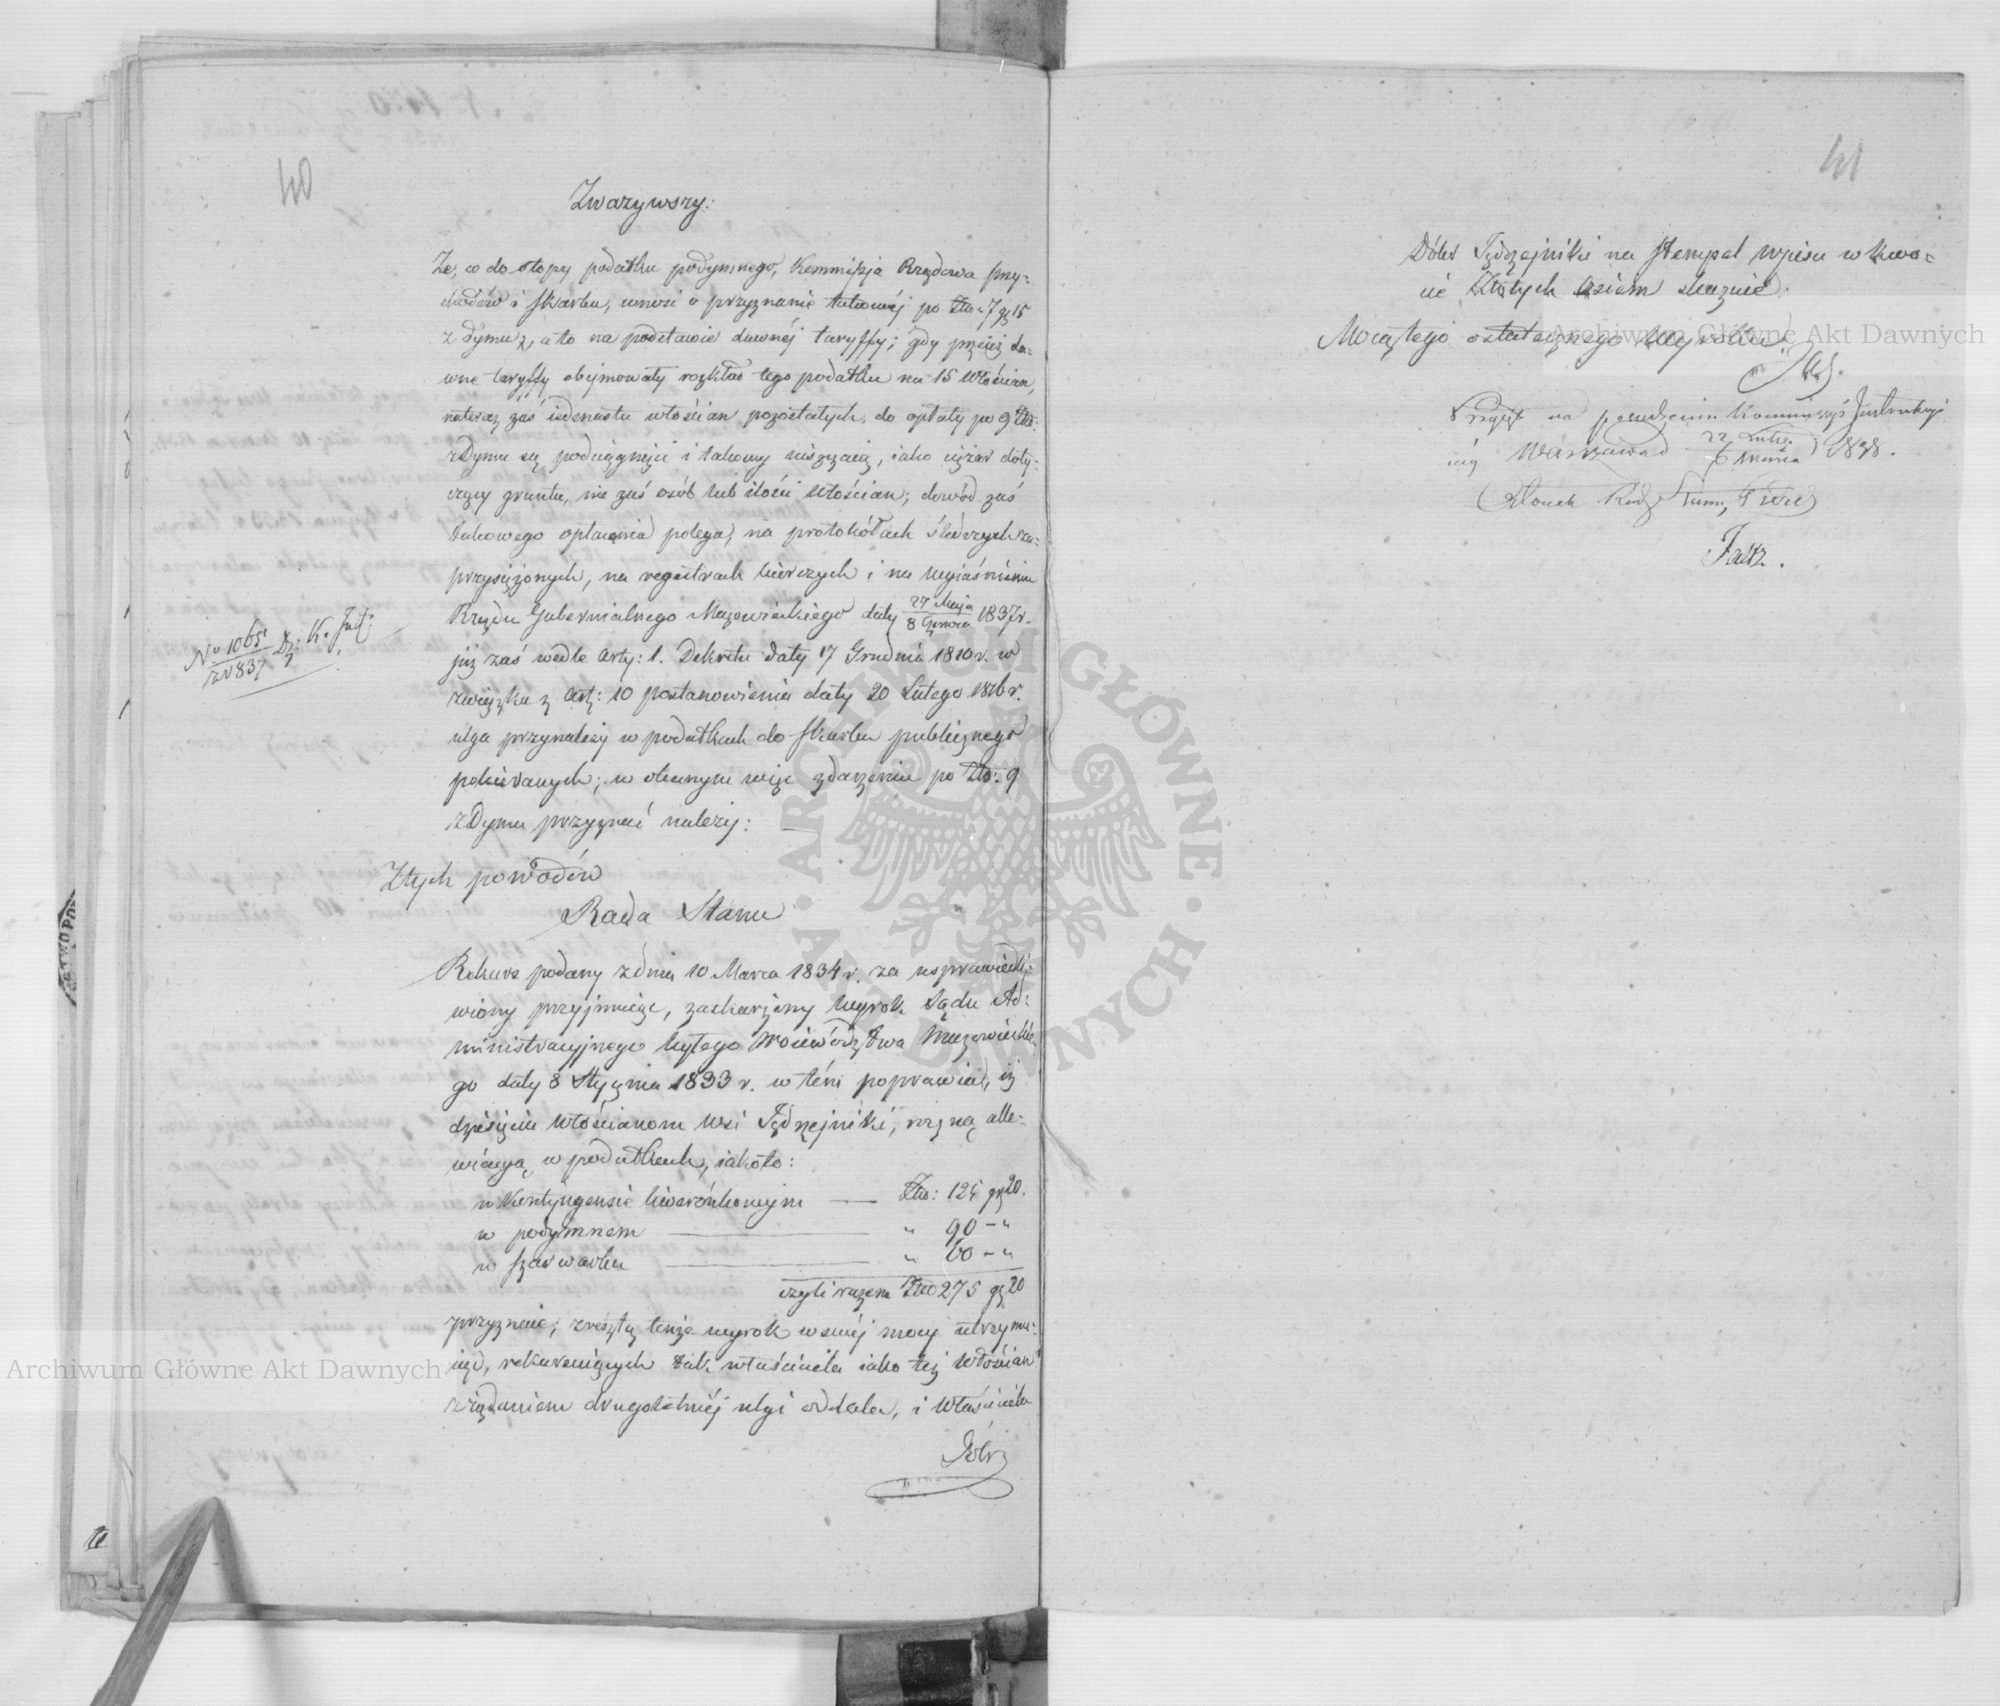 40
Zważywszy:
Że, co do stopy podatku podymnego, Kommissja Rządowa Przy-
chodów i Skarbu, wnosi o przyznanie takowéj po Złp: 7 gr 15
z dymu, a to na podstawie dawnéj taryffy; gdy przeież da-
wne taryffy obejmowały rozkład tego podatku na 15 Włościan,
na teraz zaś iedenastu włościan pozostałych, do opłaty po 9 Złp:
z Dymu są pociągnięci i takowy uiszczają, iako ciężar doty-
czący gruntu, nie zaś osób lub ilości Włościan; dowód zaś
takowego opłacania polega, na protokółach śledczych za-
przysiężonych, na regestrach bierczych i na wyjaśnieniu
Rządu Gubernialnego Mazowieckiego daty 27 Maja / 8 Czerwca 1837 r.
No 1065 / z 1837 Dz: K. Just:
już zaś wedle Arty: 1. Dekretu daty 17 Grudnia 1810 r. w
związku z Art: 10 postanowienia daty 20 Lutego 1816 r.
ulga przynależy w podatkach do Skarbu publicznego
pobieranych; w obecnym więc zdarzeniu po Złp: 9
z Dymu przyznać należy:
Z tych powodów
Rada Stanu
Rekurs podany z dnia 10 Marca 1834 r. za usprawiedli-
wiony przyjmuiąc, zaskarżony Wyrok Sądu Ad-
ministracyjnego byłego Województwa Mazowieckie-
go daty 8 Stycznia 1833 r. w tém poprawia, iż
dziesięciu włościanom Wsi Jędrzejniki, roczną alle-
wiacyą w podatkach, iakoto:
w Kontyngensie liwerónkowym — Złp: 125 gr 20.
w podymnem — " 90 – "
w szarwarku — " 60 – "
czyli razem Złp 275 gr 20
przyznaie; zresztą tenże wyrok w swéj mocy utrzymu-
iąc, rekuruiących tak właściciela iako też Włościan
z żądaniem drugoletniéj ulgi oddala, i Właściciela
Dóbr
41
Dóbr Jędrzejniki na Stempel wpisu w kwo-
cie Złotych Ośiem skazuie.
Mocą tego ostatecznego Wyroku.
Przyięt na posiedzeniu Kommissyi Instrukcyi
néy Warszawa d 22 Lutego / 6 Marca 1838.
Faltz.